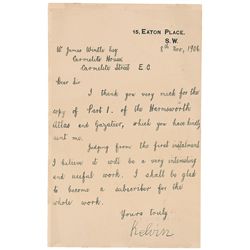 15, EATON PLACE,
S. W.
8th Nov, 1906
W. James Wintle Esq
Carmelite House
Carmelite Street E. C.
Dear Sir
I thank you very much for the
copy of Part 1. of the Harmsworth
Atlas and Gazateer, which you have kindly
sent me.
Judging from the first instalment
I believe it will be a very interesting
and useful work. I shall be glad
to become a subscriber for the
whole work.
Yours truly
Kelvin